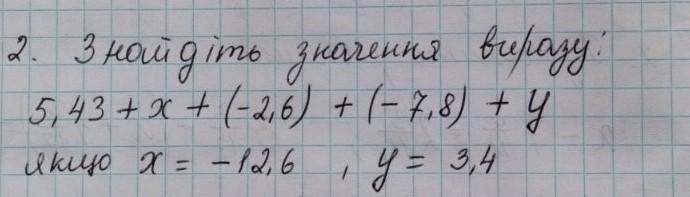 2. Знайдіть значення виразу:
5,43 + x + (-2,6) + (-7,8) + y
якщо x = -12,6 , y = 3,4